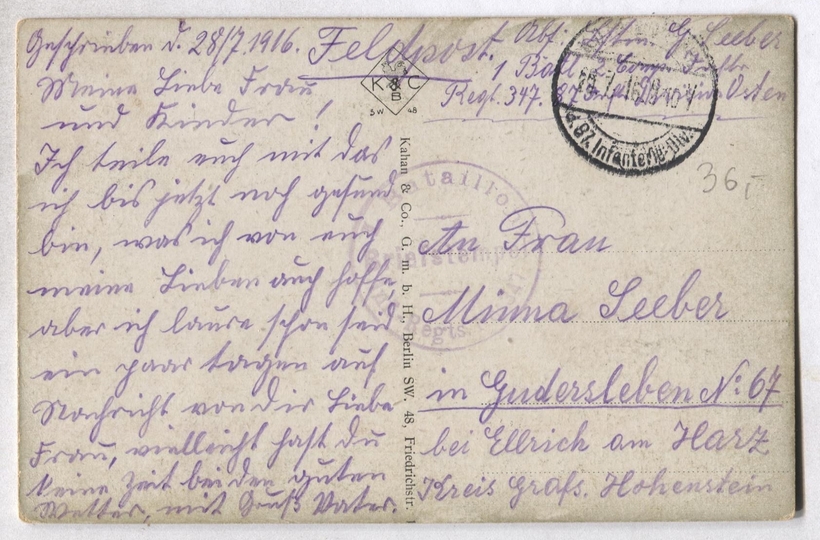 Geschrieben d. 28/7.1916.
Meine Liebe Frau
und Kinder!
Ich teile euch mit das
ich bis jetzt noch gesund
bin, was ich von euch
meine Lieben auch hoffe,
aber ich laure schon seid
ein paar tagen auf
Nachricht von dir Liebe
Frau, vielleicht hast du
keine Zeit bei den guten
Wetter, mit Gruß Vater.
Feldpost.
Abs. G. Seeber
1 Batl.
Regt. 347. 87 Osten
K & C
B
SW 48
Kahan & Co., G. m. b. H., Berlin SW. 48, Friedrichstr.
87. Infanterie-Div.
Bataillo
Briefstempel
Regts.
36,-
An Frau
Minna Seeber
in Gudersleben No: 67
bei Ellrich am Harz
Kreis Grafs. Hohenstein